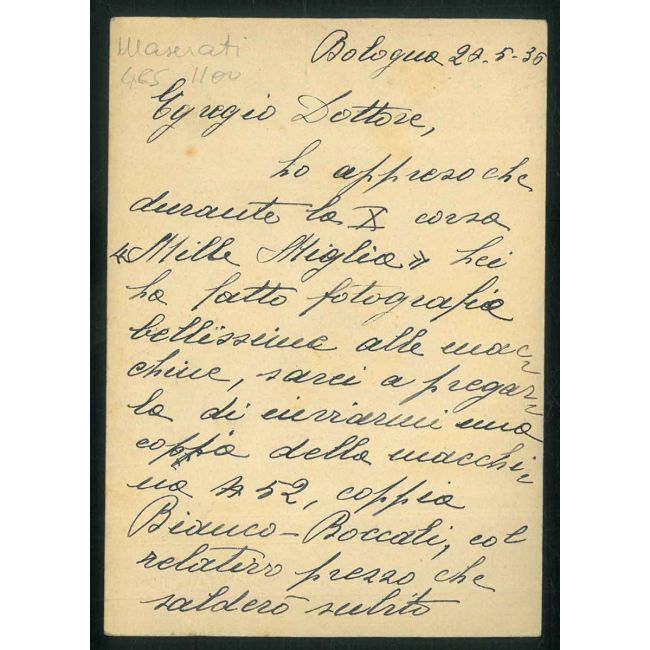 Maserati
4CS 1100
Bologna 22-5-36
Egregio Dottore,
ho appreso che
durante la X corsa
"Mille Miglia" Lei
ha fatto fotografie
bellissime alle mac=
chine, sarei a pregar=
la di inviarmi una
coppia della macchi=
na n 52, coppia
Bianco-Boccali, col
relativo prezzo che
salderò subito